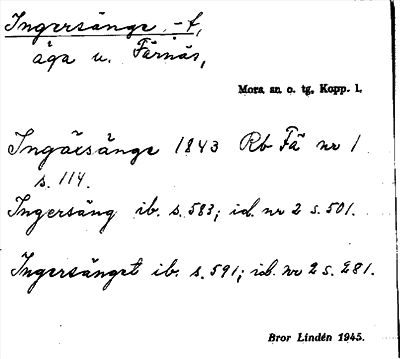 Ingersänge, -t,
äga u. Färnäs,
Mora sn. o. tg. Kopp. l.
Ingärsänge 1843 Rb Fä nr 1
s. 114.
Ingersäng ib. s. 583; id. nr 2 s. 501.
Ingersänget ib. s. 591; id. nr 2 s. 281.
Bror Lindén 1945.